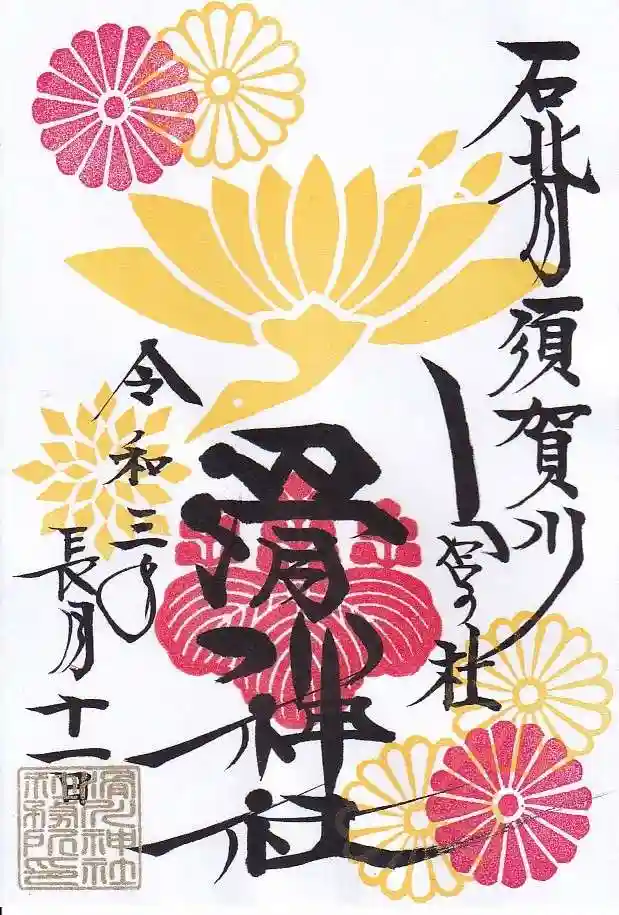 石背 須賀川
宮の社
滑川神社
令和三年
長月十一日
滑川神社
社務所印